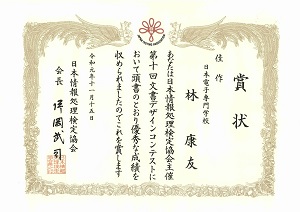 賞状
佳作
日本電子専門学校
林康友
あなたは日本情報処理検定協会主催
第十回文書デザインコンテストに
おいて頭書のとおり優秀な成績を
収められましたのでこれを賞します
令和元年十一月十五日
日本情報処理検定協会
会長